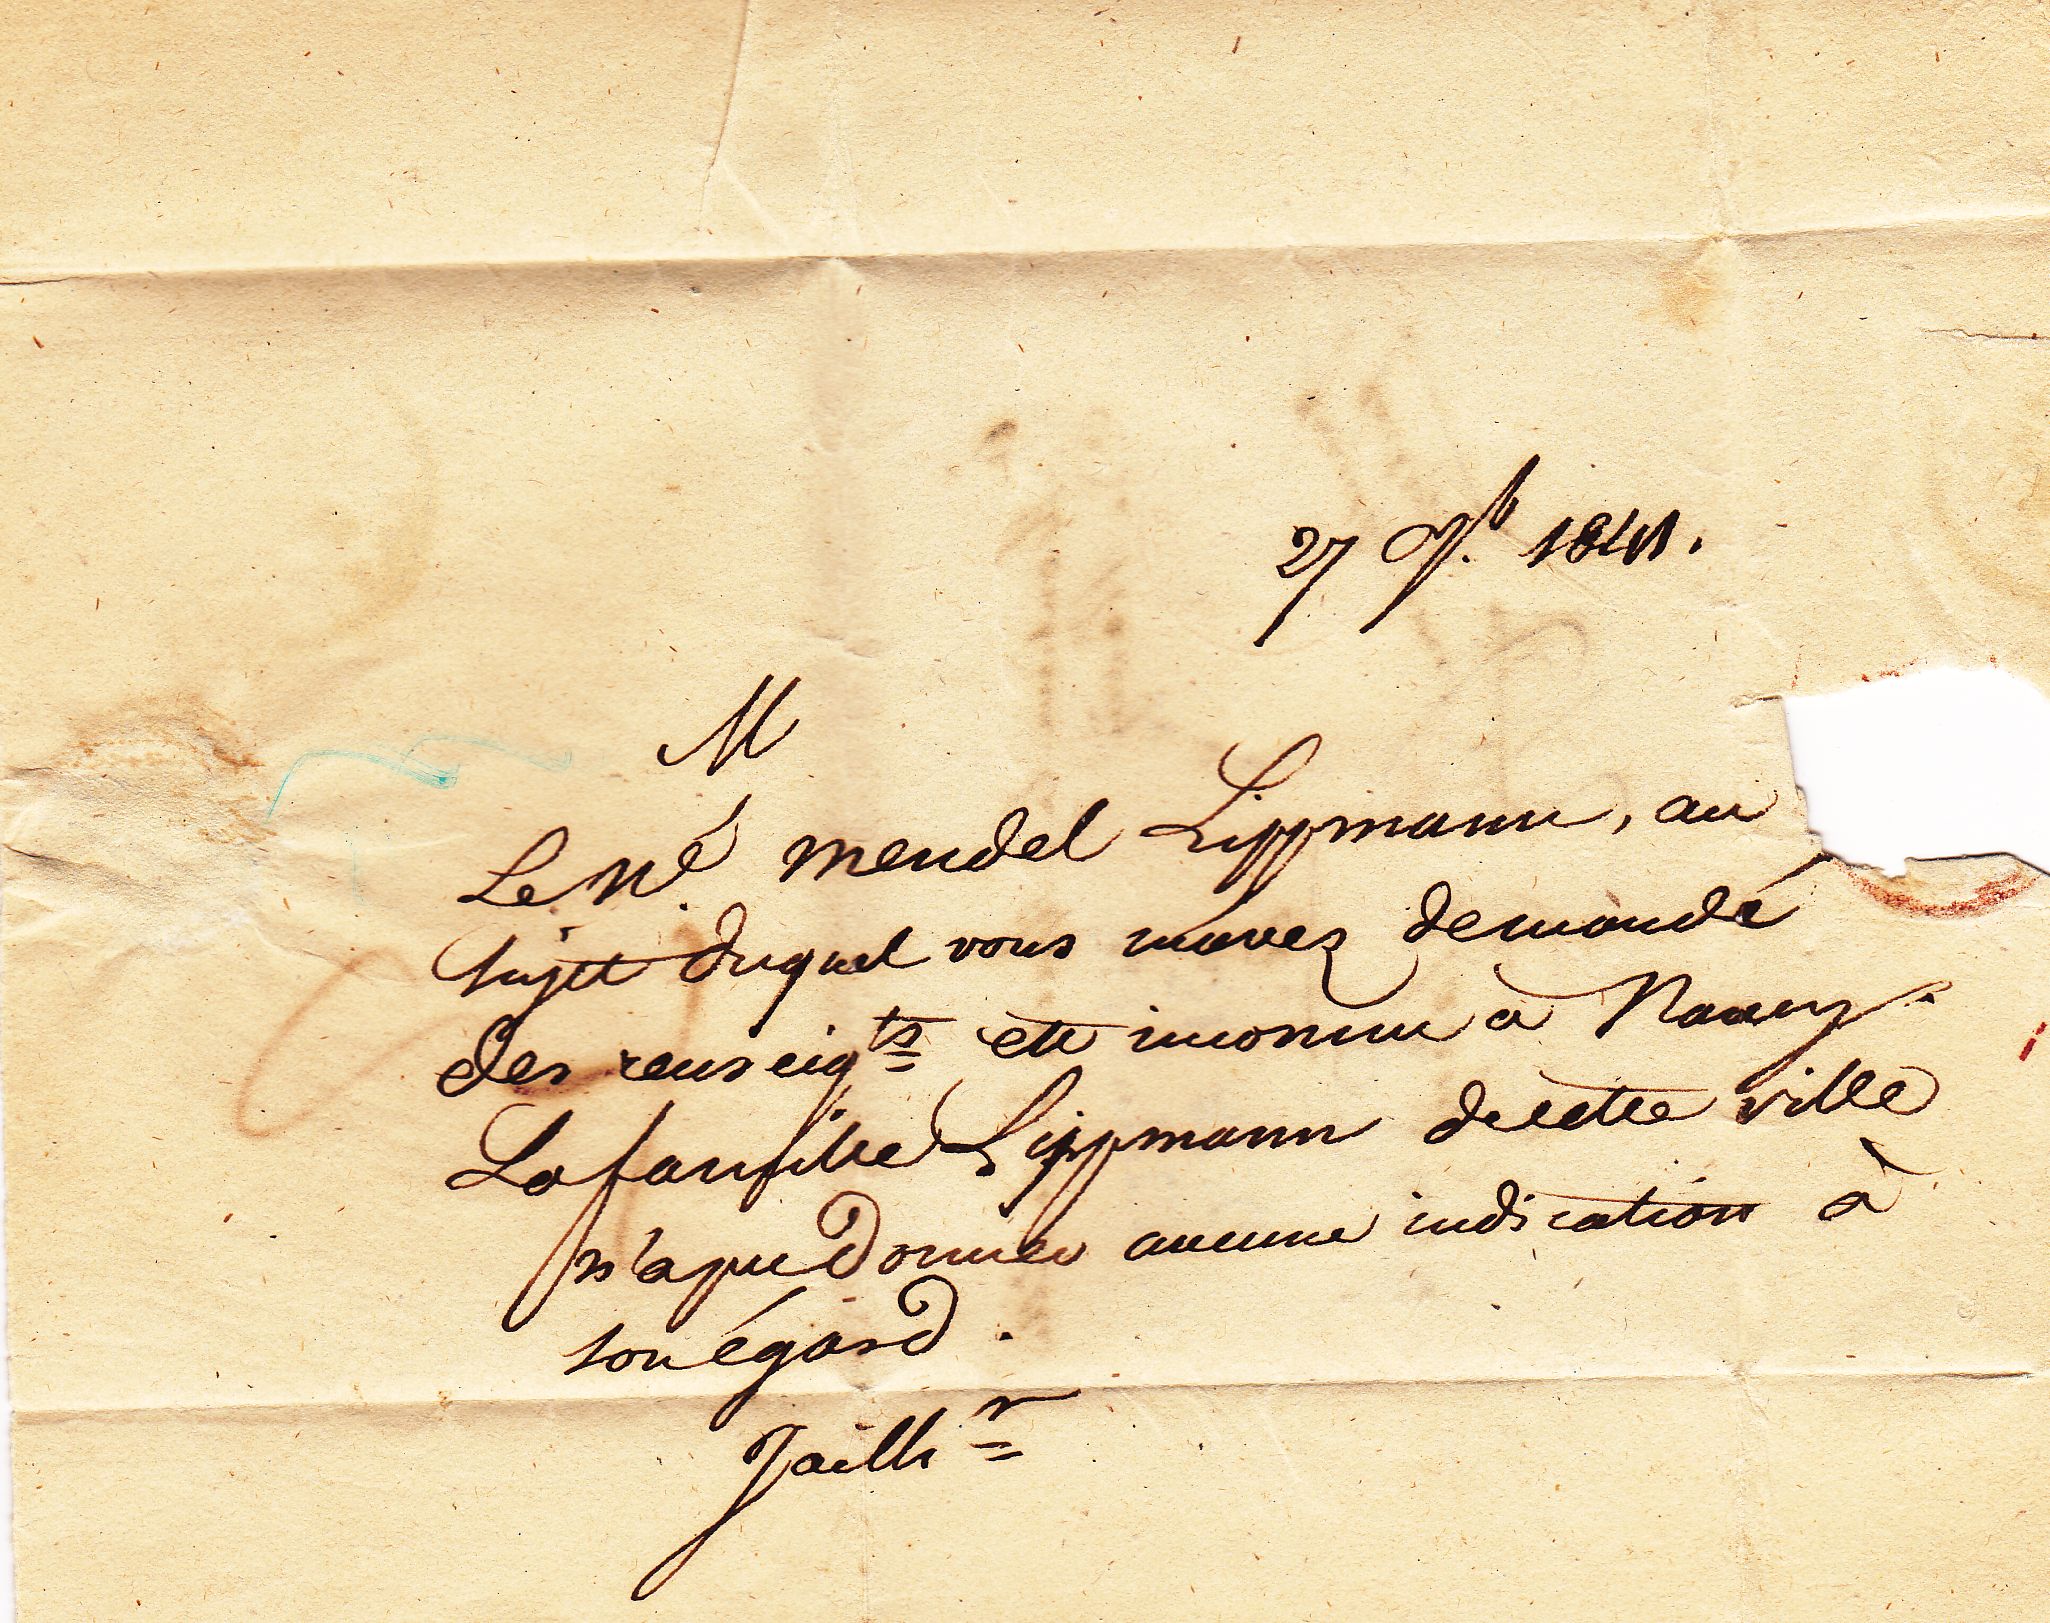 27 9b. 1841.
M
Le Né Mendel Lippmann, au
sujet duquel vous m'avez demandé
des renseigts est inconnu à Nancy.
La famille Lippmann de cette ville
n'a pu donner aucune indication à
son égard.